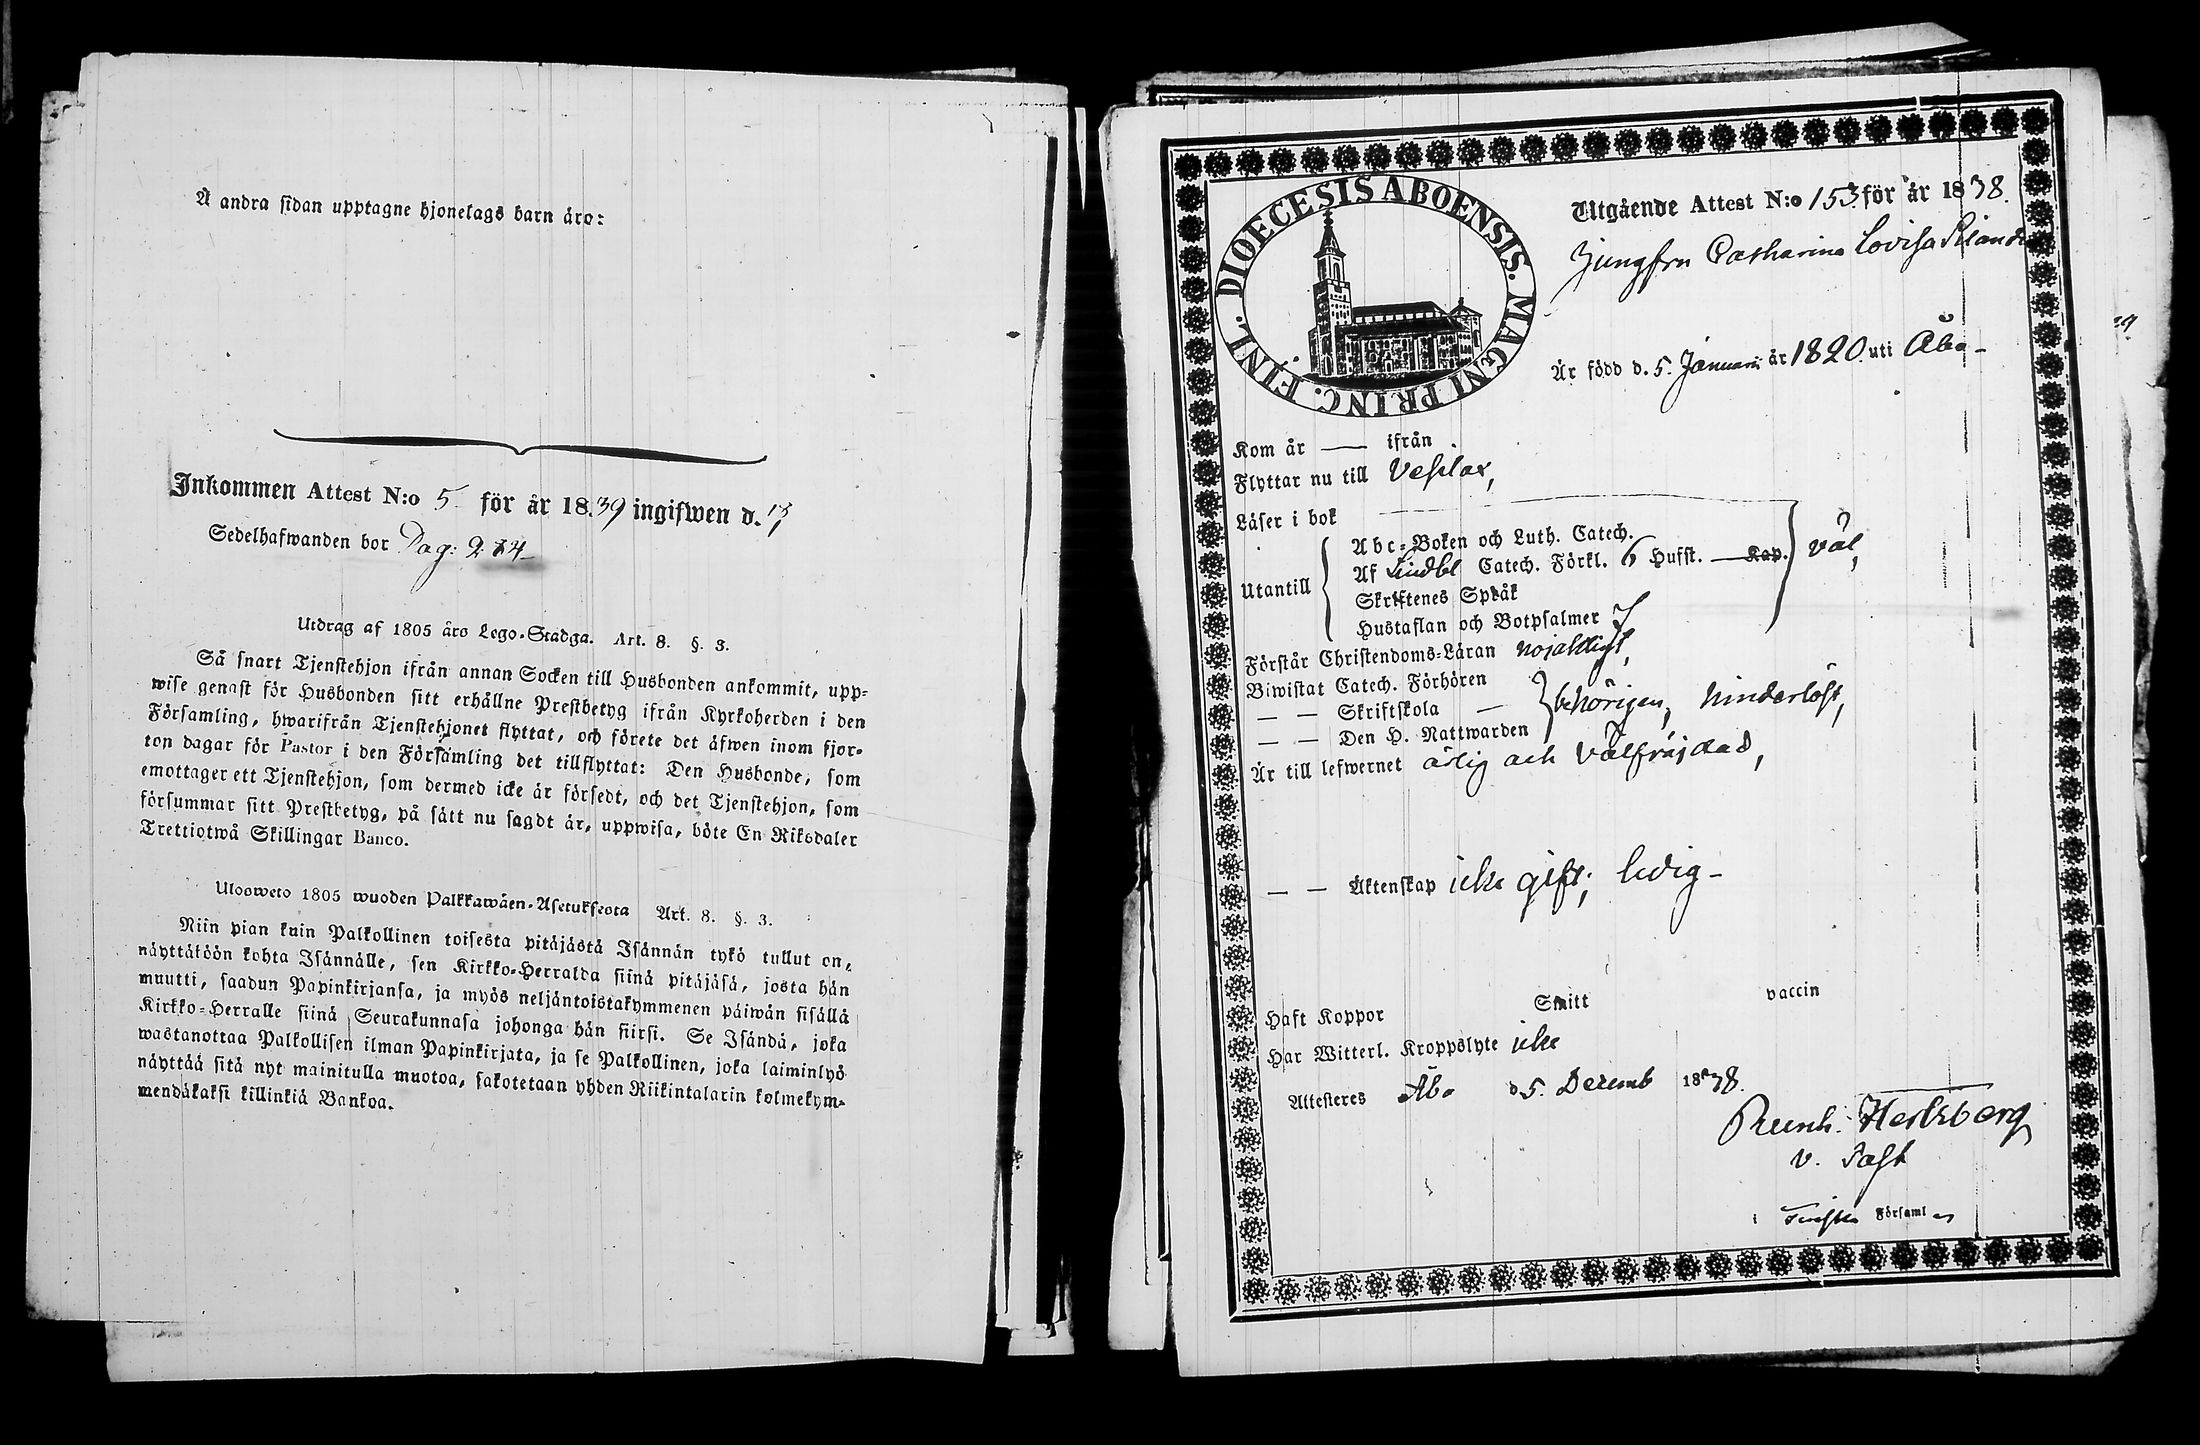 Å andra sidan upptagne hjonelags barn äro:
Inkommen Attest N:o 5 för år 1839 ingifwen d. 13
Sedelhafwanden bor Dag: 2
Utdrag af 1805 års Lego-Stadga. Art. 8. §. 3.
Så snart Tjenstehjon ifrån annan Socken till Husbonden ankommit, upp-
wise genast för Husbonden sitt erhållne Prestbetyg ifrån Kyrkoherden i den
Församling, hwarifrån Tjenstehjonet flyttat, och förete det äfwen inom fjor-
ton dagar för Pastor i den Församling det tillflyttat: Den Husbonde, som
emottager ett Tjenstehjon, som dermed icke är försedt, och det Tjenstehjon, som
försummar sitt Prestbetyg, på sätt nu sagdt är, uppwisa, böte En Riksdaler
Trettiotwå Skillingar Banco.
Ulosweto 1805 wuoden Palkkawäen-Asetuksesta Art. 8. §. 3.
Niin pian kuin Palkollinen toisesta pitäjästä Isännän tykö tullut on,
näyttäköön kohta Isännälle, sen Kirkko-Herralda siinä pitäjäsä, josta hän
muutti, saadun Papinkirjansa, ja myös neljäntoistakymmenen päiwän sisällä
Kirkko-Herralle siinä Seurakunnasa johonga hän siirsi. Se Isändä, joka
wastanottaa Palkollisen ilman Papinkirjata, ja se Palkollinen, joka laiminlyö
näyttää sitä nyt mainitulla muotoa, sakotetaan yhden Riikintalarin kolmekym-
mendäkaksi killinkiä Bankoa.
DIOECESIS ABOENSIS. MAGNI PRINC. FINL.
Utgående Attest N:o 153 för år 1838.
Jungfru Catharina Lovisa
Är född d. 5. Januari år 1820 uti Åbo
Kom år — ifrån
Flyttar nu till Vesilax,
Läser i bok
Utantill
Abc-Boken och Luth. Catech.
Af Lindbl Catech. Förkl. 6 Hufst. — Kap.
väl,
Skriftenes Språk
Hustaflan och Botpsalmer 7
Förstår Christendoms-Läran nöjaktigt,
Biwistat Catech. Förhören
— — Skriftskola —
behörigen, hinderlöst,
— — Den H. Nattwarden
Är till lefwernet ärlig och välfräjdad,
— — Äktenskap icke gift; ledig -
Haft Koppor Smitt vaccin
Har Witterl. Kroppslyte icke
Attesteres Åbo d. 5. Decemb 1838.
Reinh. Hertzberg
v. Past
i Finska Församl en